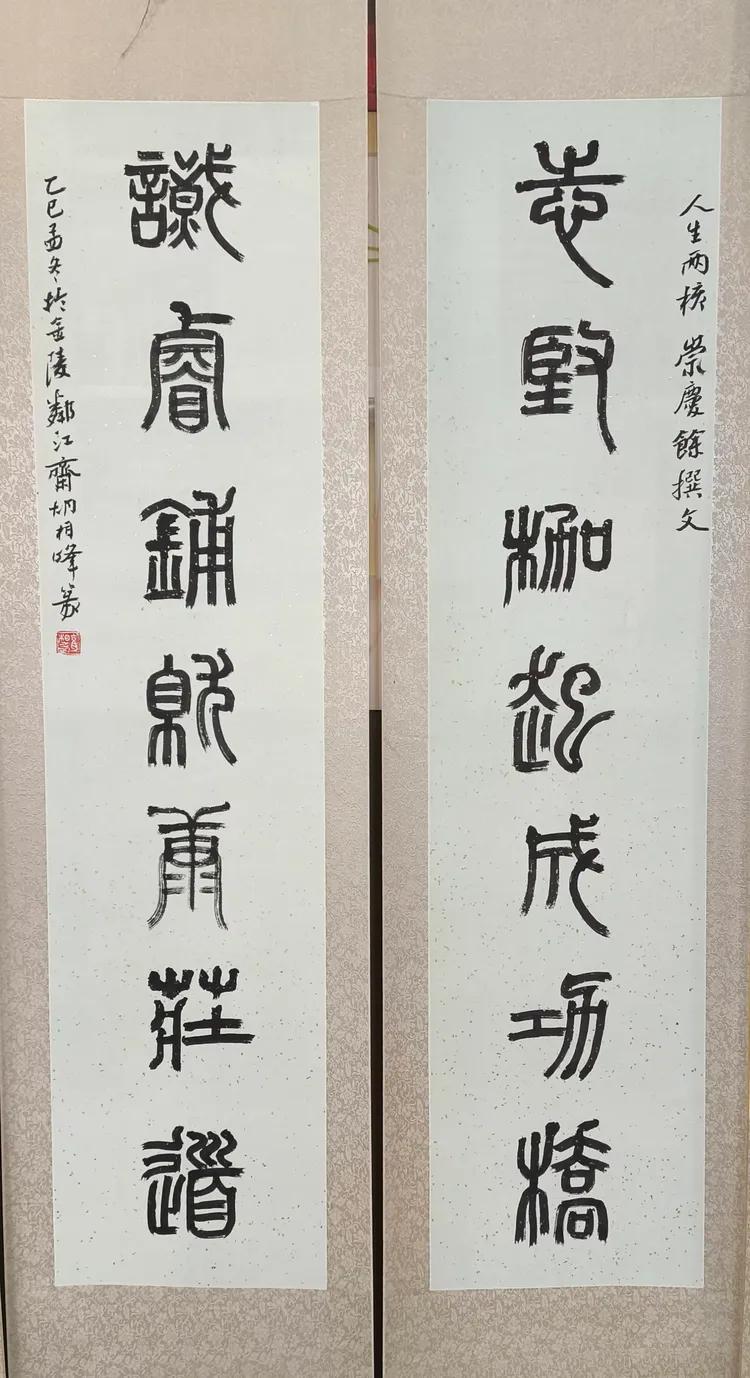 人生两核 崇慶餘撰文
志堅架起成功橋
識睿鋪就康莊道
乙巳孟冬於金陵鄰江齋相峰篆